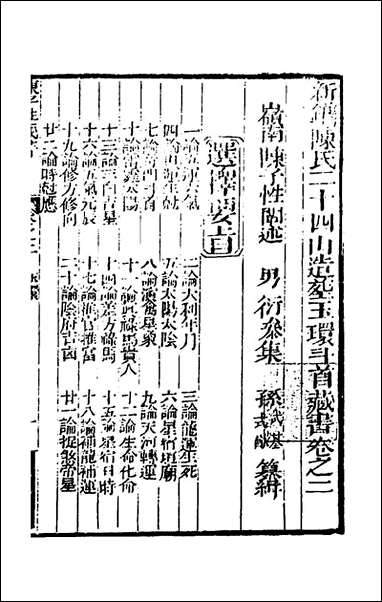 新鐫陳氏二十四山造葬玉環斗首藏書卷之二
嶺南 陳子性 闡述 男 衍參集 孫 算緝
選擇要旨
一論五運六氣 二論大利年月 三論龍運生死
四論山運生剋 五論太陽太陰 六論星宿垣廟
七論奇門司首 八論演禽星象 九論天河轉運
十論雷霆太陽 十一論眞祿馬貴人 十二論生命化命
十三論三白吉星 十四論蓋方祿馬 十五論星宿日時
十六論五氣元辰 十七論催官推富 十八論補龍補運
十九論修方修向 二十論陰府吉凶 廿一論捉煞帝星
廿二論時尅應